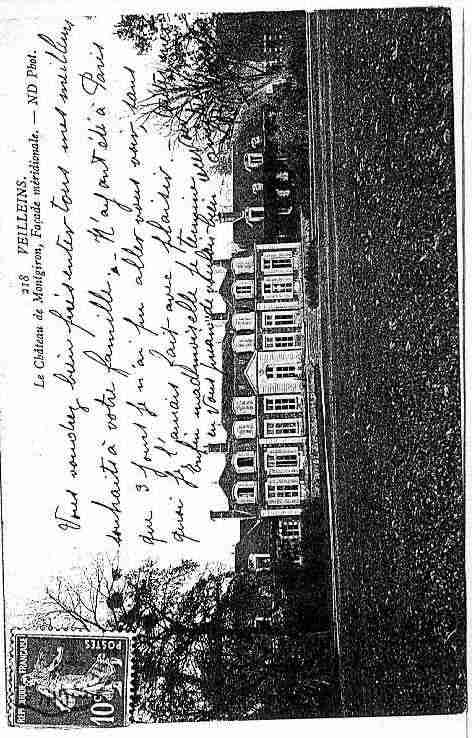 218 VEILLEINS.
Le Château de Montgiron, Façade méridionale. — ND Phot.
Vous voudrez bien présenter tous mes meilleurs
souhaits à votre famille. N'ayant été à Paris
que 3 jours je n'ai pu aller vous voir, sans
quoi je l'aurais fait avec plaisir.
Enfin mademoiselle je termine
en vous
POSTES
10c